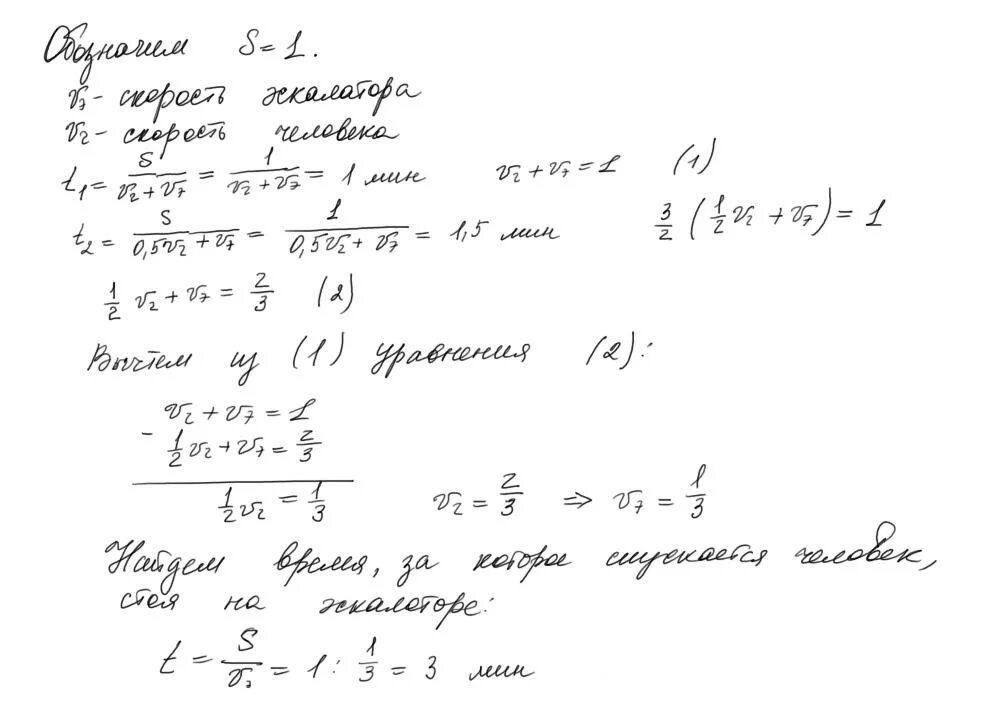 Обозначим S = 1.
v₇ - скорость эскалатора
v₂ - скорость человека
t₁ = S/(v₂ + v₇) = 1/(v₂ + v₇) = 1 мин v₂ + v₇ = 1 (1)
t₂ = S/(0,5v₂ + v₇) = 1/(0,5v₂ + v₇) = 1,5 мин 3/2 (1/2 v₂ + v₇) = 1
1/2 v₂ + v₇ = 2/3 (2)
Вычтем из (1) уравнения (2):
v₂ + v₇ = 1
- 1/2 v₂ + v₇ = 2/3
1/2 v₂ = 1/3 v₂ = 2/3 ⇒ v₇ = 1/3
Найдем время, за которое спускается человек,
стоя на эскалаторе:
t = S/v₇ = 1 : 1/3 = 3 мин